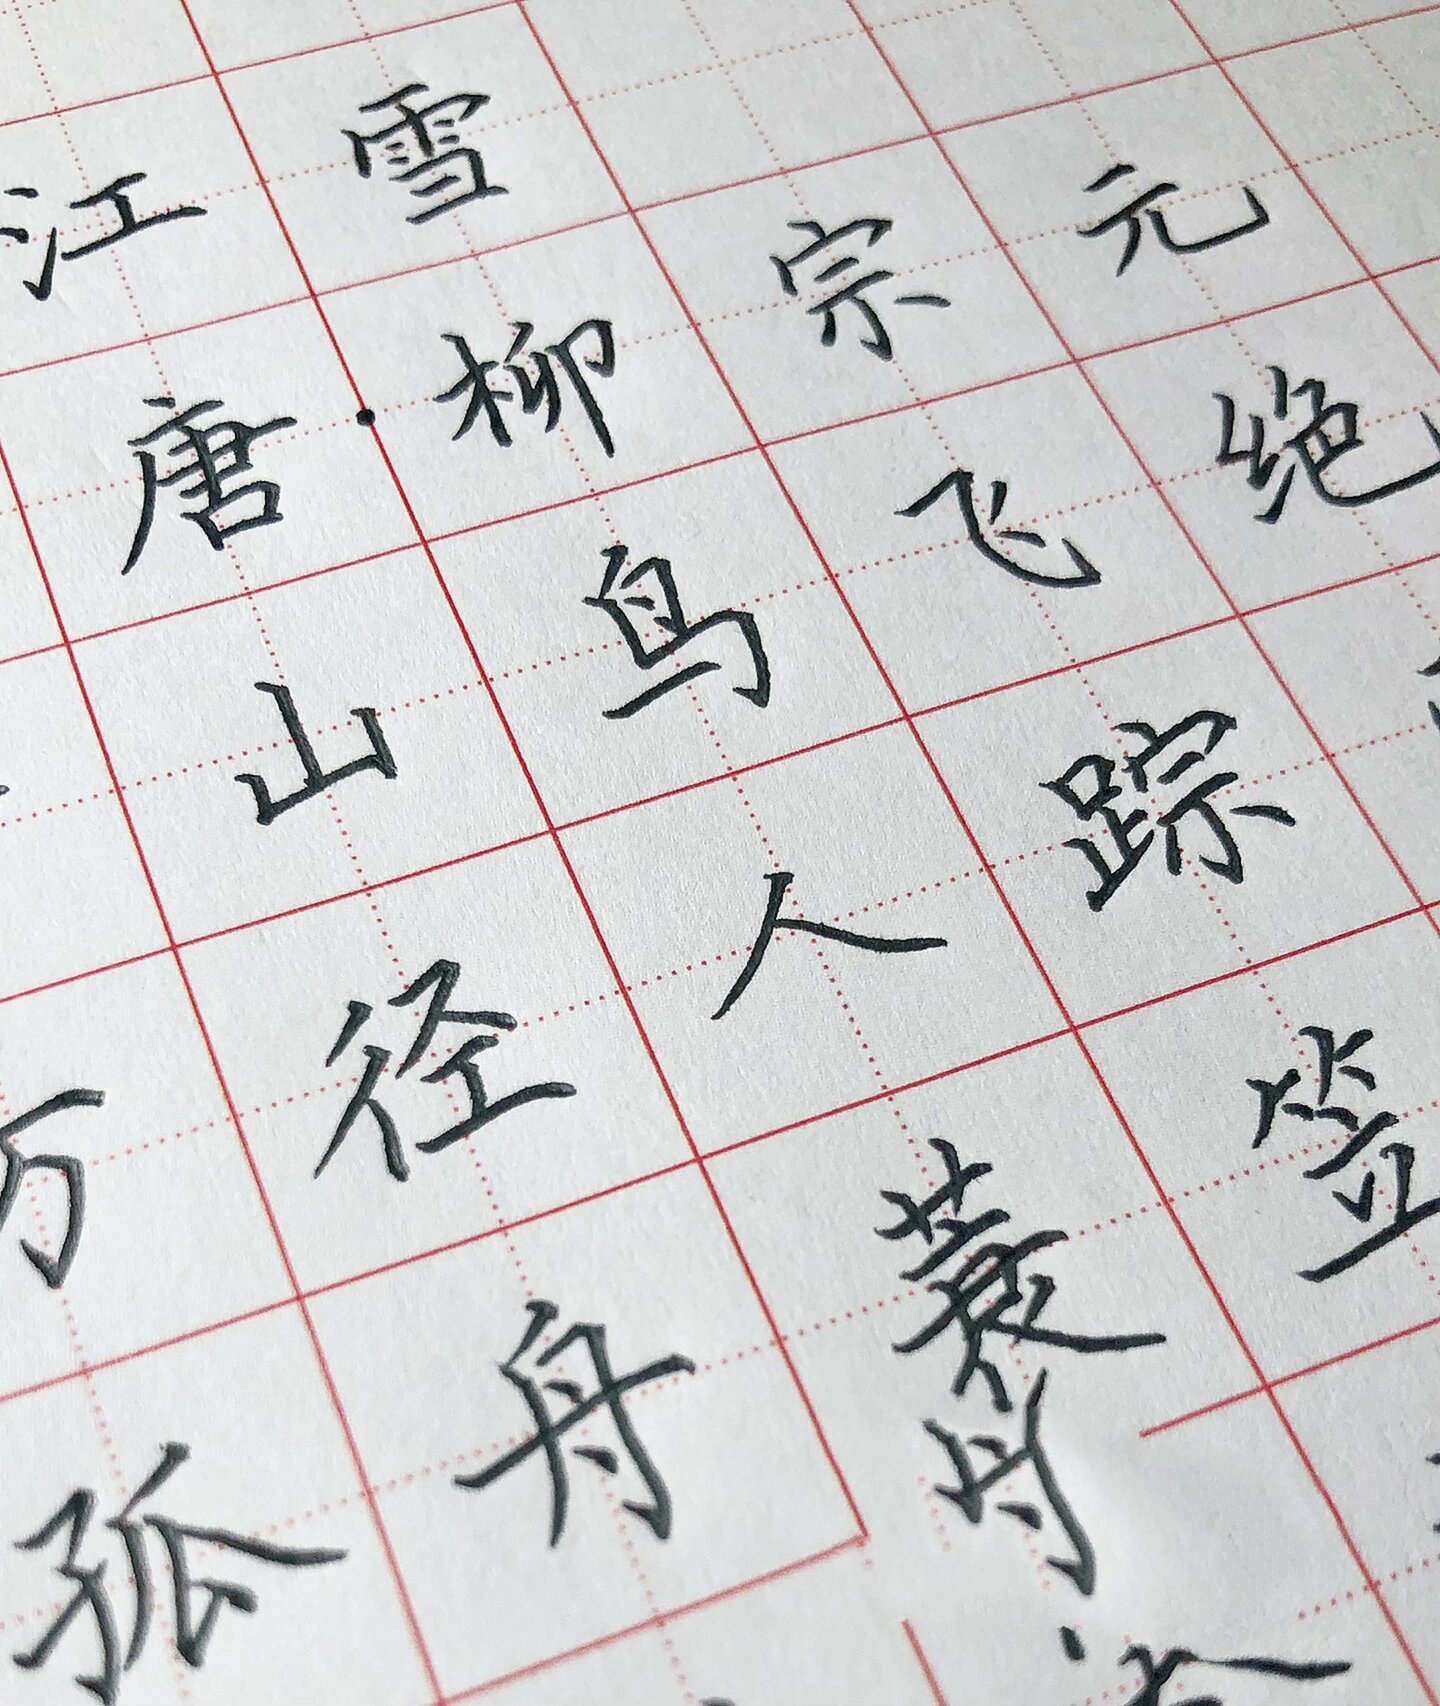 江雪
唐·柳宗元
山鸟飞绝
万径人踪
孤舟蓑笠